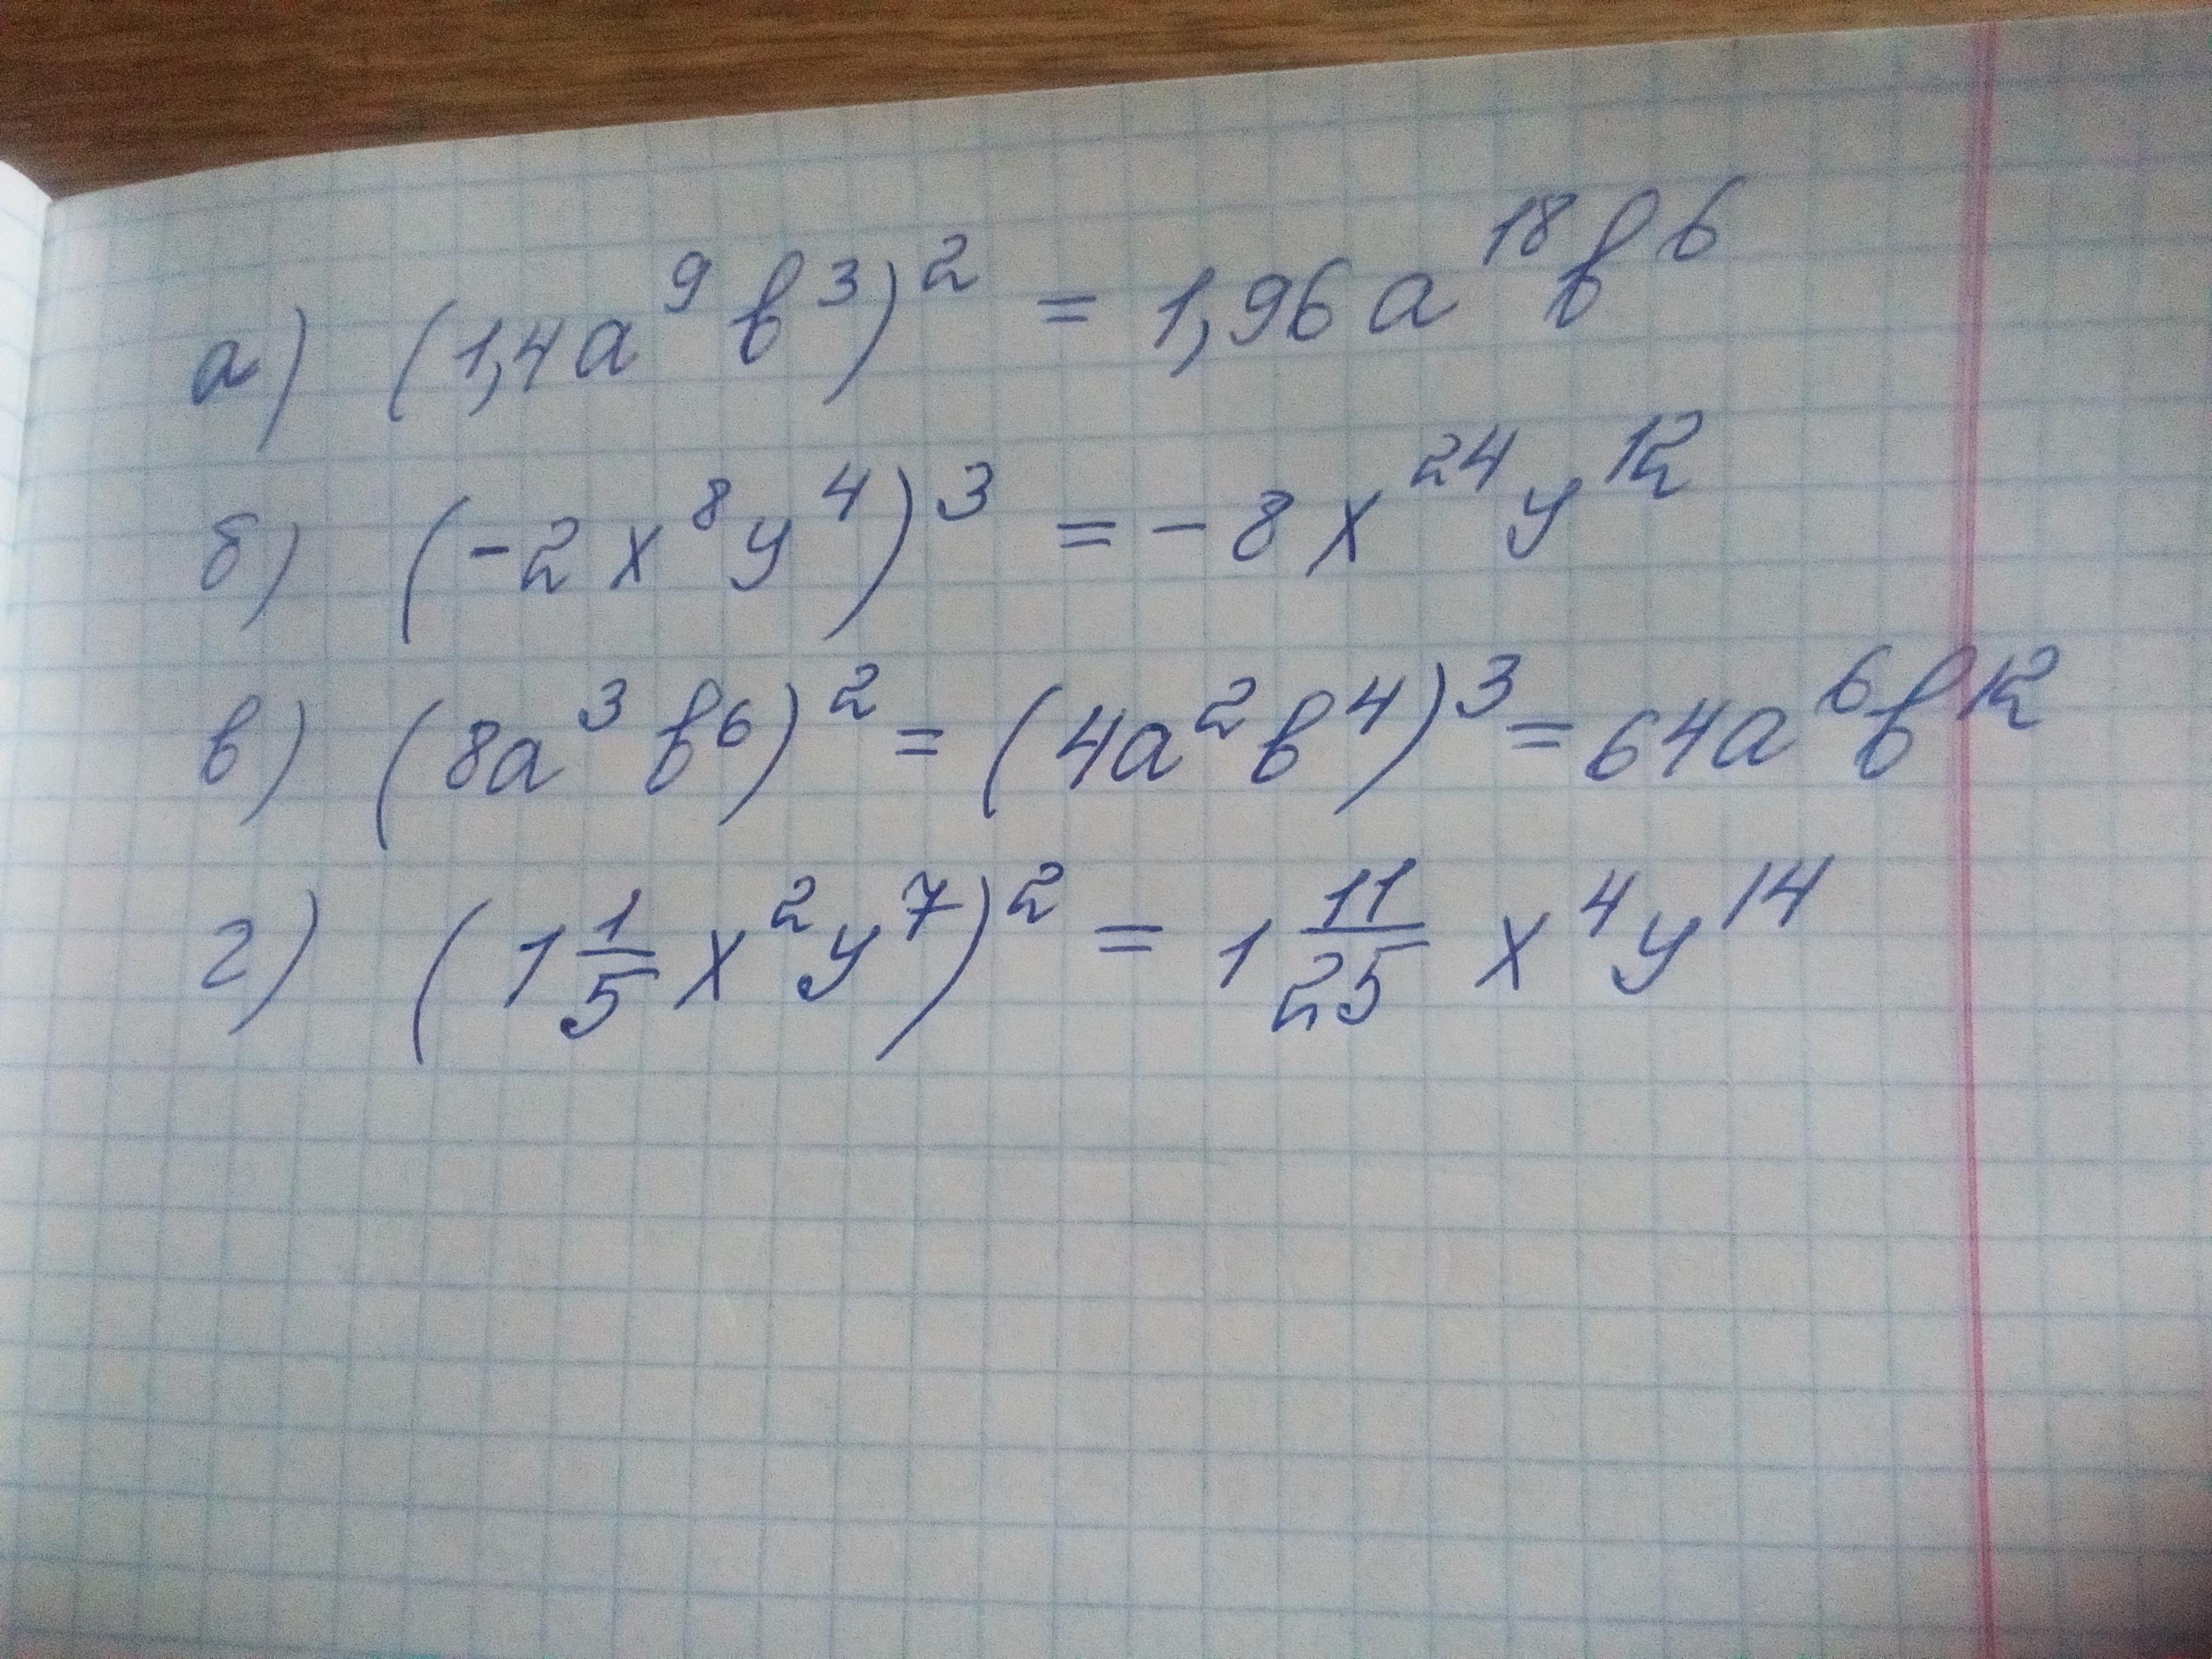 а) (1,4a⁹b³)² = 1,96a¹⁸b⁶
б) (-2x⁸y⁴)³ = -8x²⁴y¹²
в) (8a³b⁶)² = (4a²b⁴)³ = 64a⁶b¹²
г) (1 1/5 x²y⁷)² = 1 11/25 x⁴y¹⁴